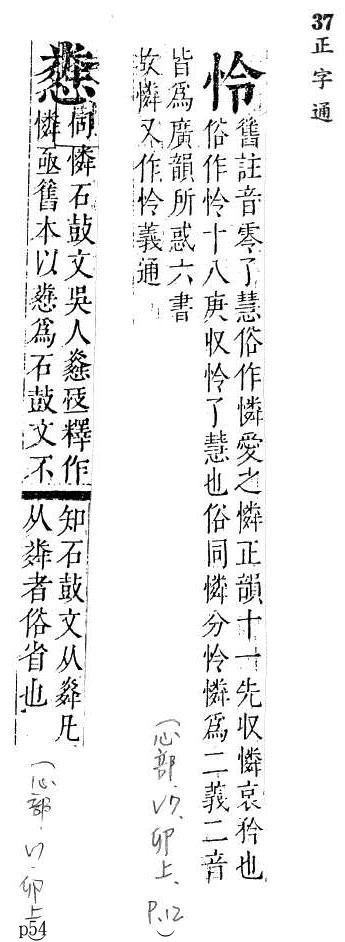 37正字通
怜
舊註音零了慧俗作憐愛之憐正韻十一先收憐哀矜也
俗作怜十八庚收怜了慧也俗同憐分怜憐為二義二音
皆為廣韻所惑六書
故憐又作怜義通
(心部.17.卯上.P.12)
同憐石鼓文吳人憐亟釋作
憐亟舊本以為石鼓文不
知石鼓文从粦凡
从者俗省也
(心部.17.卯上
p54